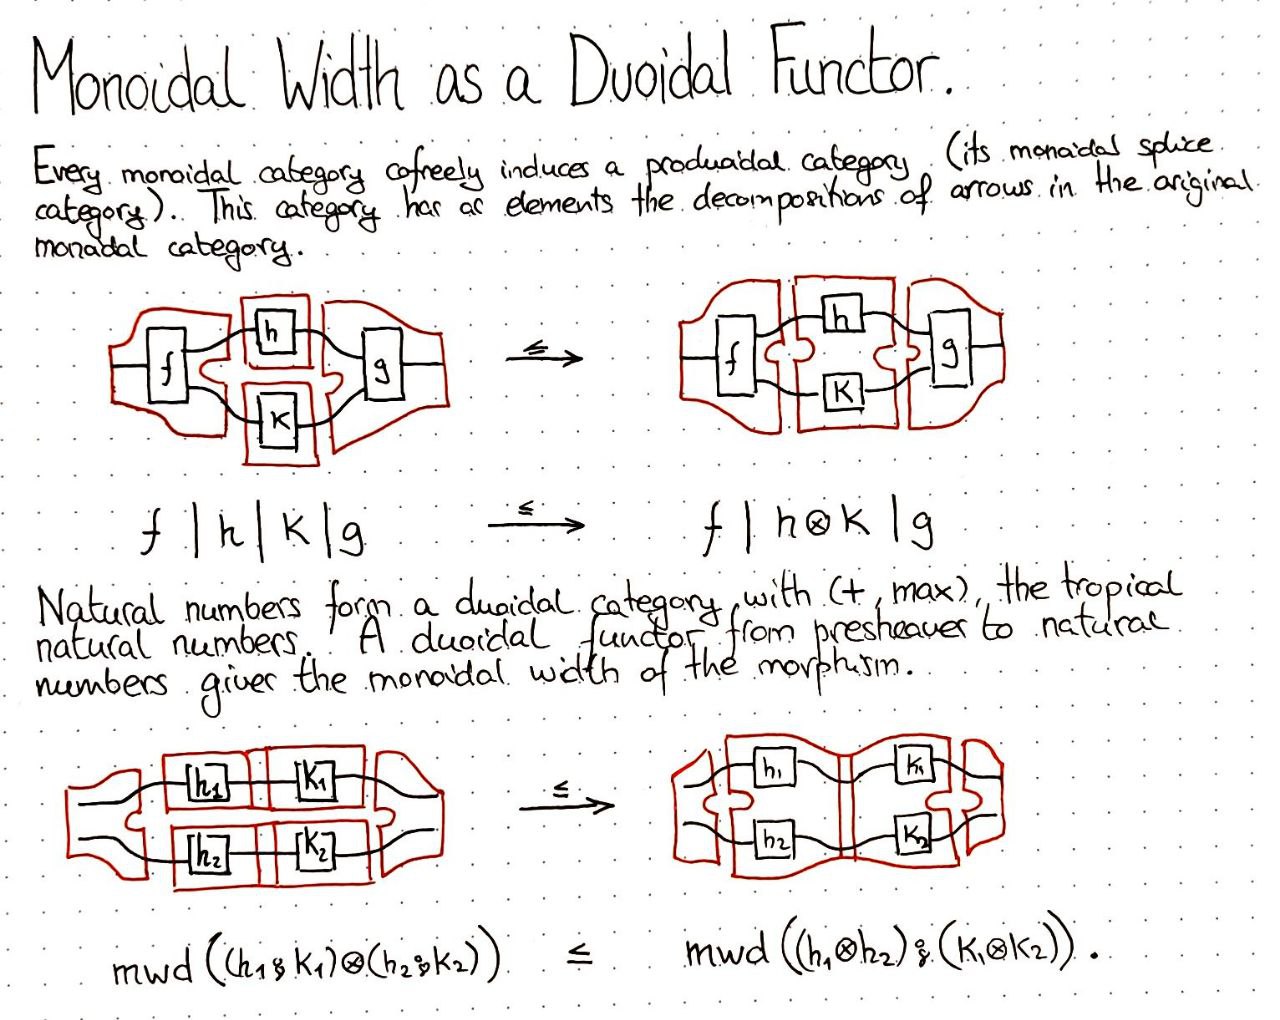 Monoidal Width as a Duoidal Functor.
Every monoidal category cofreely induces a produoidal category (its monoidal splice
category). This category has as elements the decompositions of arrows in the original
monoidal category.
f h k g ≤ f h k g
f | h | k | g ≤ f | h ⊗ k | g
Natural numbers form a duoidal category with (+, max), the tropical
natural numbers. A duoidal functor from presheaves to natural
numbers gives the monoidal width of the morphism.
h₁ k₁ ≤ h₁ k₁
h₂ k₂ h₂ k₂
mwd ((h₁⨾k₁)⊗(h₂⨾k₂)) ≤ mwd ((h₁⊗h₂)⨾(k₁⊗k₂)).